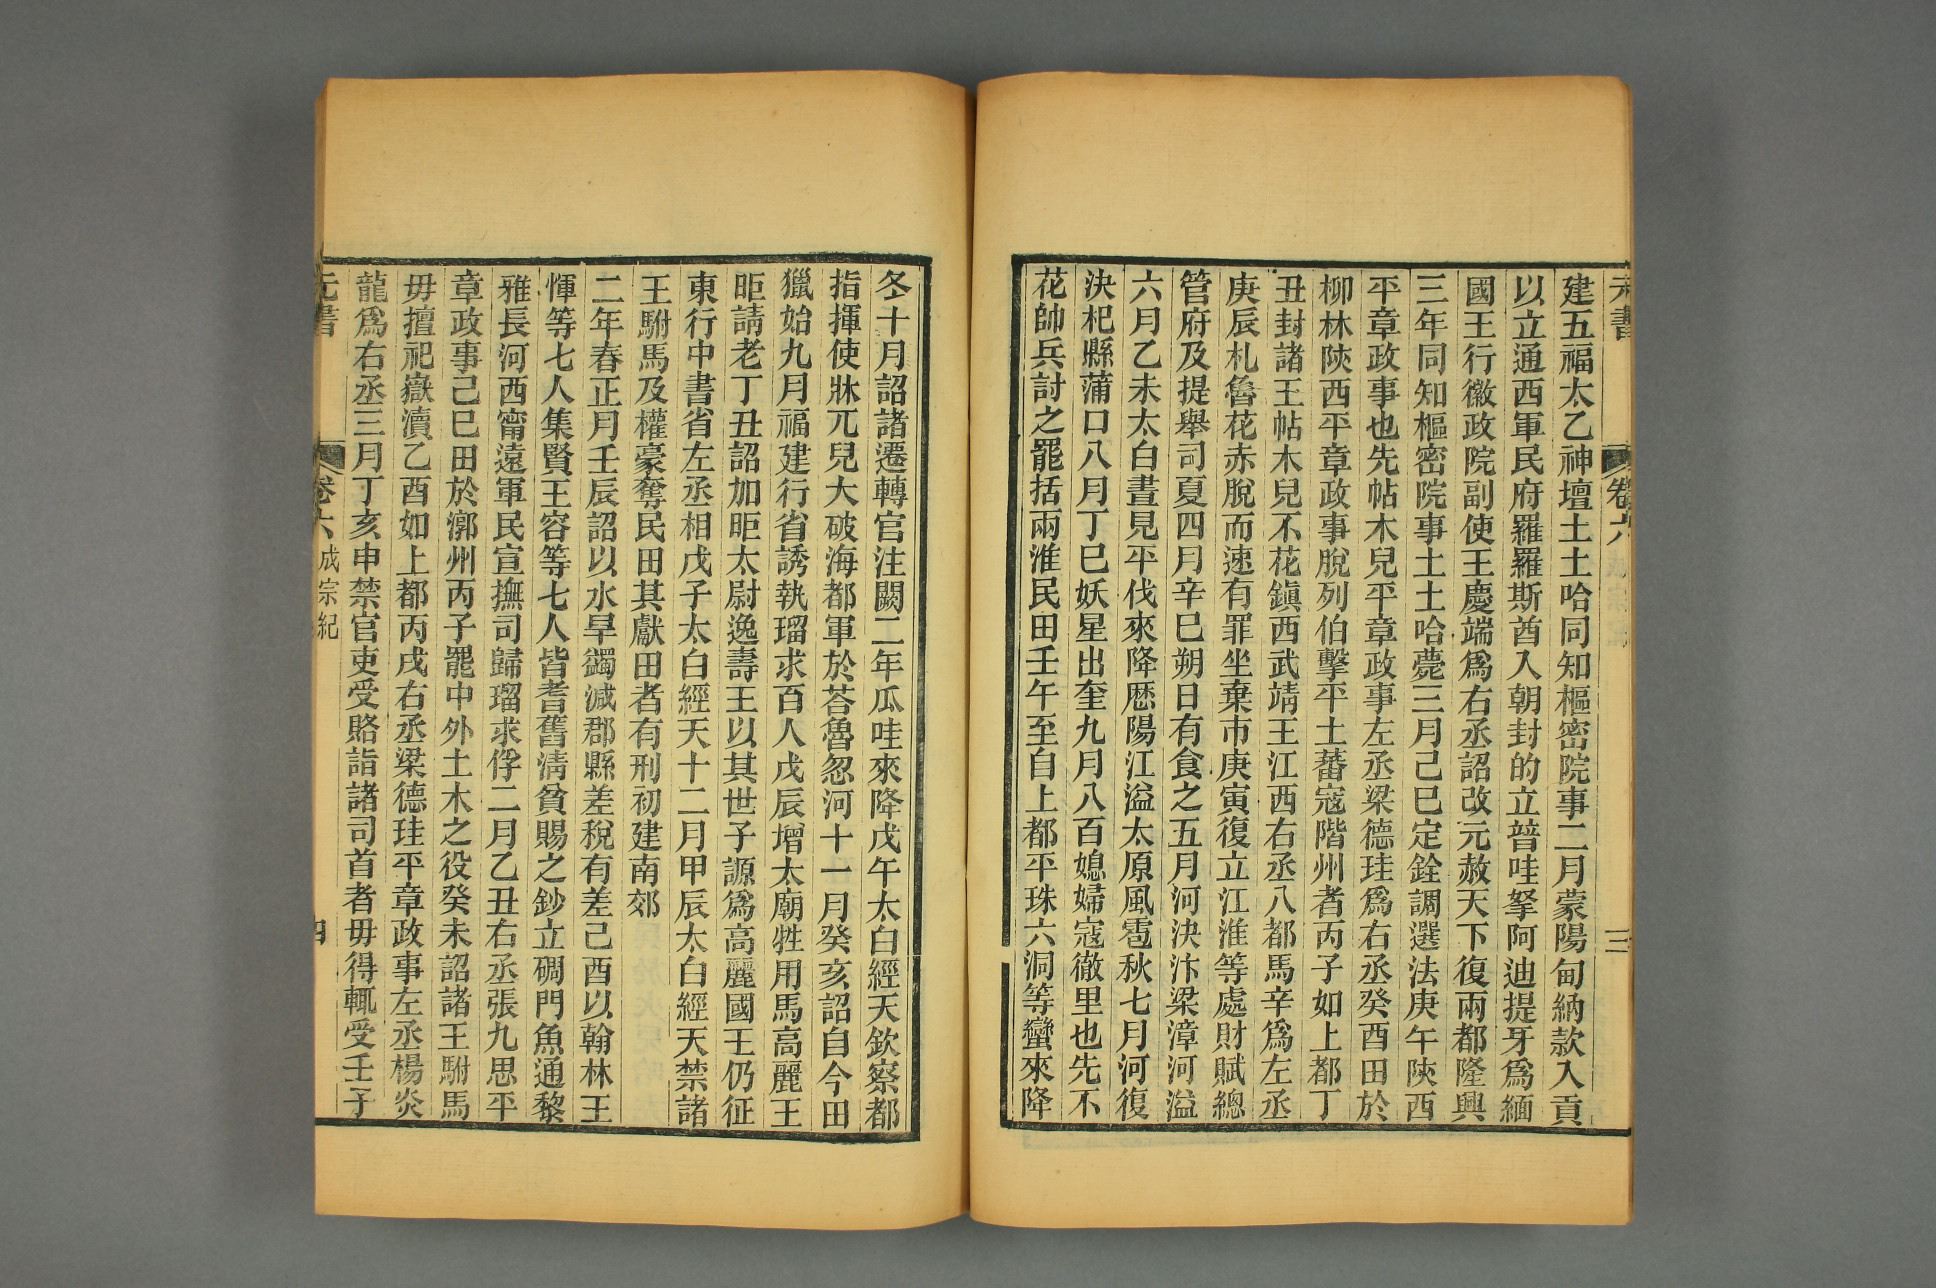 元書
卷六
三
建五福太乙神壇土土哈同知樞密院事二月蒙陽甸納款入貢
以立通西軍民府羅羅斯酋入朝封的立普哇拏阿迪提牙爲緬
國王行徽政院副使王慶端爲右丞詔改元赦天下復兩都隆興
三年同知樞密院事土土哈薨三月己巳定銓調選法庚午陝西
平章政事也先帖木兒平章政事左丞梁德珪爲右丞癸酉田於
柳林陝西平章政事脫列伯擊平土蕃寇階州者丙子如上都丁
丑封諸王帖木兒不花鎭西武靖王江西右丞八都馬辛爲左丞
庚辰札魯花赤脫而速有罪坐棄市庚寅復立江淮等處財賦總
管府及提舉司夏四月辛巳朔日有食之五月河決汴梁漳河溢
六月乙未太白晝見平伐來降厯陽江溢太原風雹秋七月河復
決杞縣蒲口八月丁巳妖星出奎九月八百媳婦寇徹里也先不
花帥兵討之罷括兩淮民田壬午至自上都平珠六洞等蠻來降
冬十月詔諸遷轉官注闕二年瓜哇來降戊午太白經天欽察都
指揮使牀兀兒大破海都軍於荅魯忽河十一月癸亥詔自今田
獵始九月福建行省誘執瑠求百人戊辰增太廟牲用馬高麗王
昛請老丁丑詔加昛太尉逸壽王以其世子謜爲高麗國王仍征
東行中書省左丞相戊子太白經天十二月甲辰太白經天禁諸
王駙馬及權豪奪民田其獻田者有刑初建南郊
二年春正月壬辰詔以水旱蠲減郡縣差稅有差己酉以翰林王
惲等七人集賢王容等七人皆耆舊淸貧賜之鈔立碉門魚通黎
雅長河西甯遠軍民宣撫司歸瑠求俘二月乙丑右丞張九思平
章政事己巳田於漷州丙子罷中外土木之役癸未詔諸王駙馬
毋擅祀嶽瀆乙酉如上都丙戌右丞梁德珪平章政事左丞楊炎
龍爲右丞三月丁亥申禁官吏受賂詣諸司首者毋得輒受壬子
元書
卷六
成宗紀
四